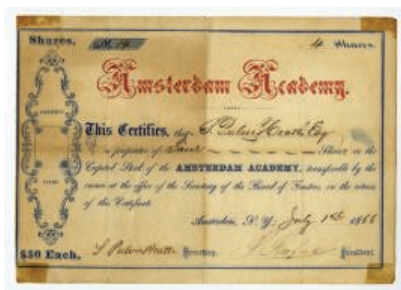 Shares, No. 14 4 Shares.
Amsterdam Academy.
This Certifies, that S. Pulver Heath, Esq
is proprietor of Four Shares in the
Capital Stock of the AMSTERDAM ACADEMY, transferable by the
owner at the office of the Secretary of the Board of Trustees, on the return
of this Certificate.
Amsterdam, N. Y. July 1st 1866
$50 Each, S Pulver Heath Secretary. President.